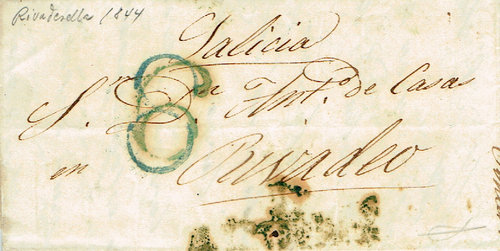 Rivadesella 1844
Galicia
8
S.r D.n Ant.o de Casas
en Rivadeo